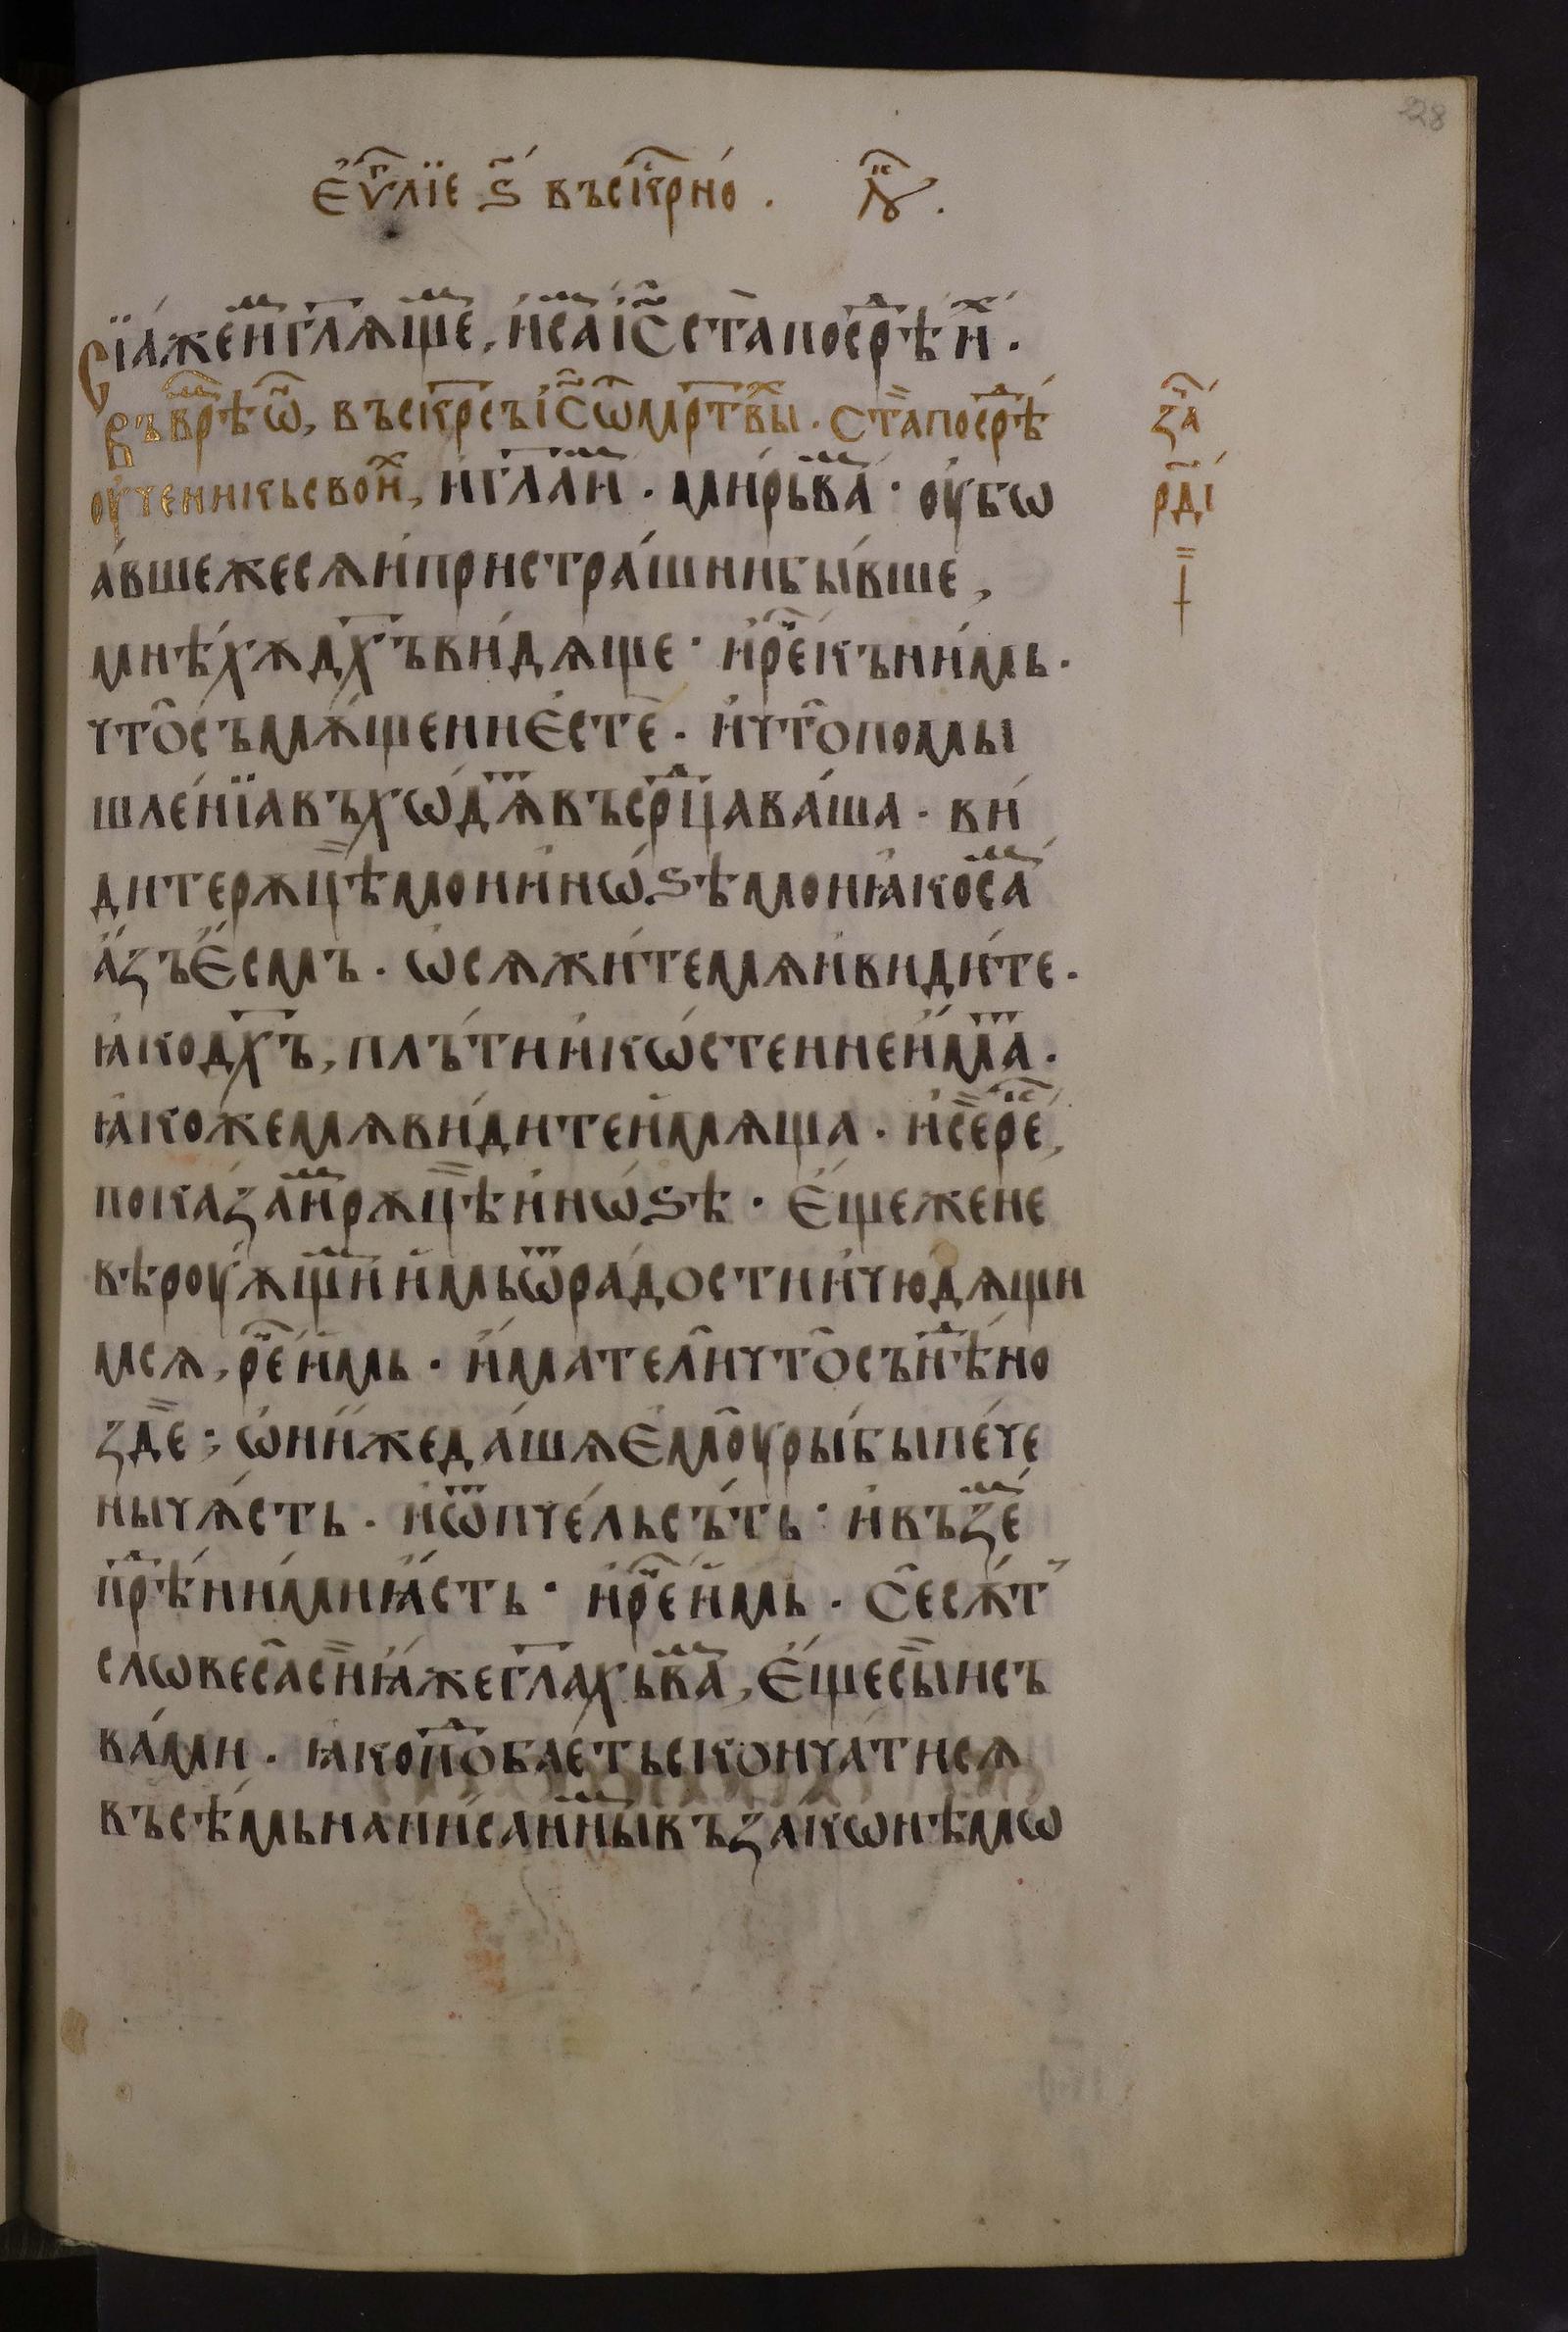 228
Е҆ѵⷢ҇лїе ѕ҃ въскрⷭ҇но́ . лꙋⷦ҇ .
Сїа́же и҆ⷨ гл҃ѧще , и҆ саⷨ і҆с҃ ста̀ посрⷣѣ иⷯ .
Въ вⷨрѣ ѡ҆́н , въскрⷭ҇съ і҆с҃ ѿ мр҃твыⷯ . ста̀ посрⷣѣ
оу҆ченникь своиⷯ , и҆ гл҃а иⷨ . ми́рь ваⷨ · оу҆бѡ
а́вше же сѧ и҆ пристра́шни бы́вше ,
мнѣ́хѫ дх҃ъ ви́дѧще · и҆ реⷱ҇ къ ни́мь .
что̀ съмѫ́щенни є҆стѐ . и҆ что̀ помы
шле́нїа въхѡ́дѧⷮ въ срⷣца ва́ша . ви́
дите рѫцѣ̀ мои и҆ нѡ́ѕѣ мои ꙗ҆ко саⷨ
а҆́зъ є҆́смъ . ѡ҆сѧжи́те мѧ и҆ види́те .
ꙗ҆ко дх҃ъ , плъ́ти и҆ кѡ́стен не и҆́маⷮ .
ꙗ҆коже мѧ ви́дите и҆мѧща . и҆ сѐ реⷦ҇ ,
показа́ иⷨ рѫцѣ̀ и҆ нѡ́ѕѣ · Є҆́ще же не
вѣроу́ѫщиⷨ и҆мь ѿ ра́дости и҆ чю́дѧщи
мсѧ , реⷱ҇ и҆́мь . и҆́мате лѝ что̀ сънⷣѣно
здѐ ; ѡ҆ни́и же да́шѧ є҆моу̀ ры́бы пе́че
ны чѧ́сть . и҆ ѿ пче́ль съ́ть · и҆ въ́зеⷨ
прⷣѣ ни́ми ꙗ҆́сть · и҆ реⷱ҇ и҆́мь . Сѐ сѫ́т
словеса̀ сѝ ꙗ҆́же гл҃ахь ваⷨ , є҆́ще сы̀и съ
ва́ми . ꙗ҆ко поⷣбае́ть скончати сѧ
въсѣ́мь написанныⷨ въ зако́нѣ мѡ
заⷱ҇
рд҃і
†